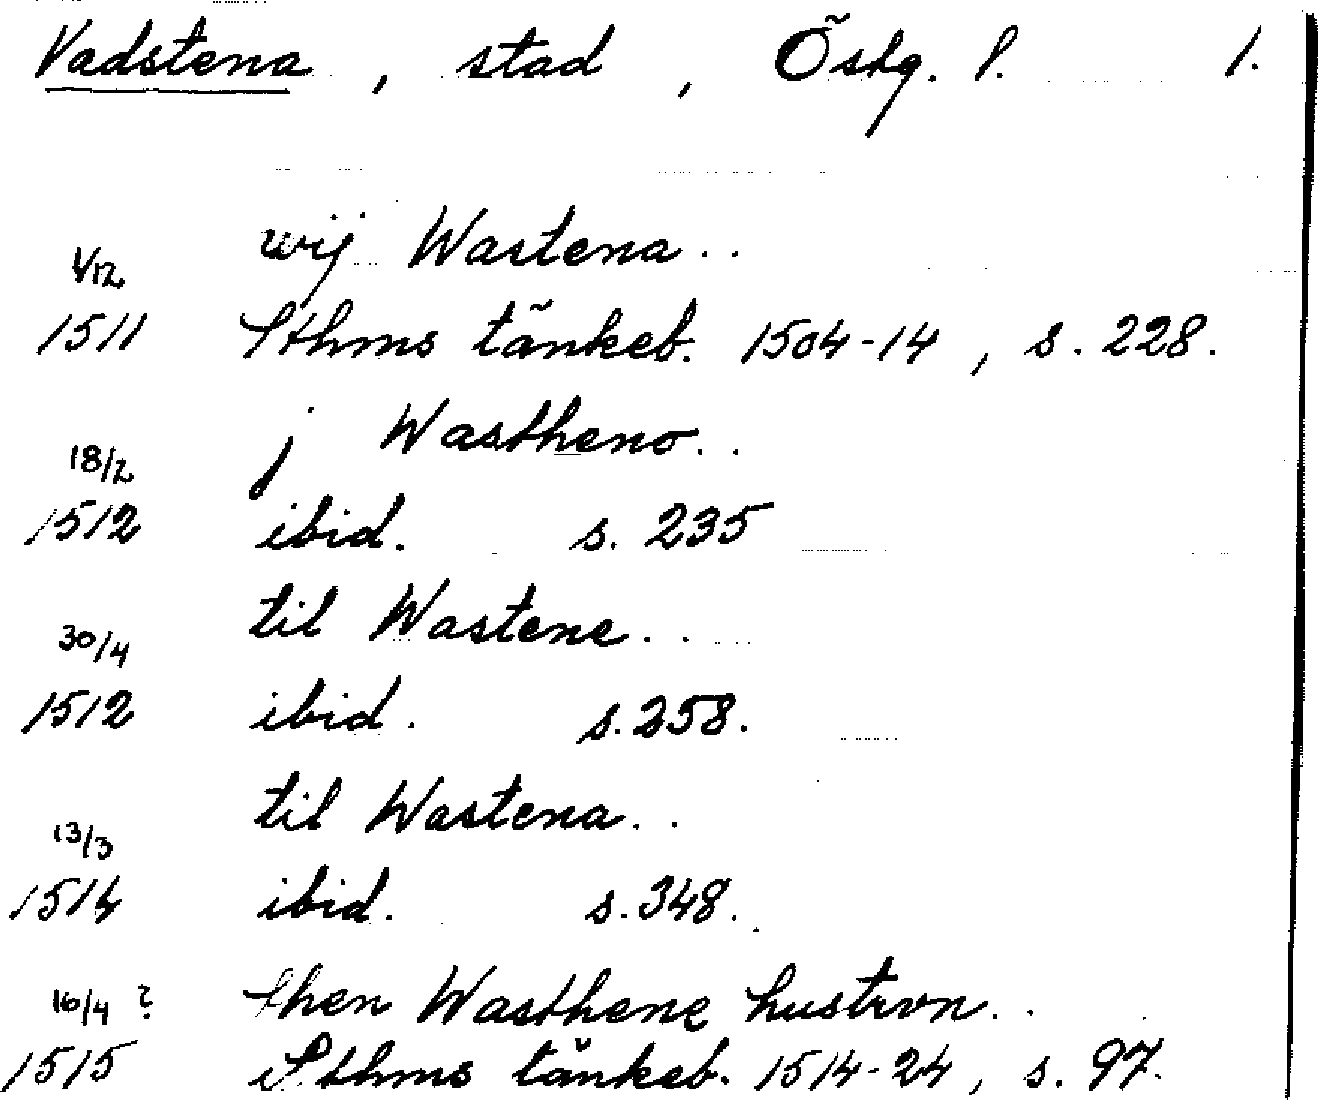 Vadstena, stad, Östg. l. 1.
wij Wastena..
1/12
1511 Sthms tänkeb. 1504-14, s. 228.
j Wastheno..
18/2
1512 ibid. s. 235
til Wastene..
30/4
1512 ibid. s. 258.
til Wastena..
13/3
1514 ibid. s. 348.
16/4 ? then Wasthene hustrvn..
1515 Sthms tänkeb. 1514-24, s. 97.